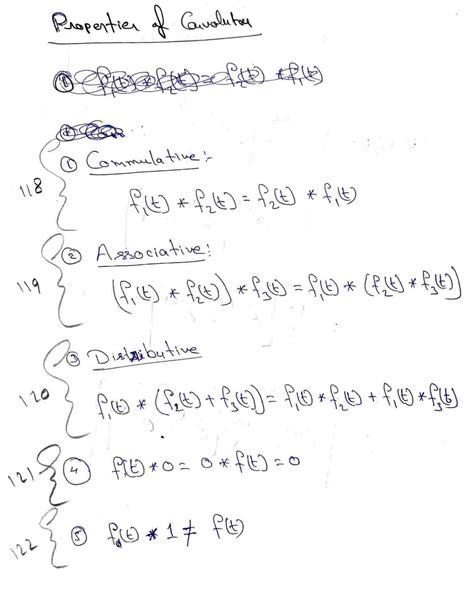 Properties of Convolution
① f₁(t) * f₂(t) = f₂(t) * f₁(t)
① Commulative:-
118
f₁(t) * f₂(t) = f₂(t) * f₁(t)
② Associative:
119
(f₁(t) * f₂(t)) * f₃(t) = f₁(t) * (f₂(t) * f₃(t))
③ Distributive
120
f₁(t) * (f₂(t) + f₃(t)) = f₁(t) * f₂(t) + f₁(t) * f₃(t)
121
④ f(t) * 0 = 0 * f(t) = 0
122
⑤ f(t) * 1 ≠ f(t)